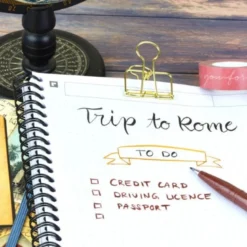 Trip to Rome
TO DO
CREDIT CARD
DRIVING LICENCE
PASSPORT